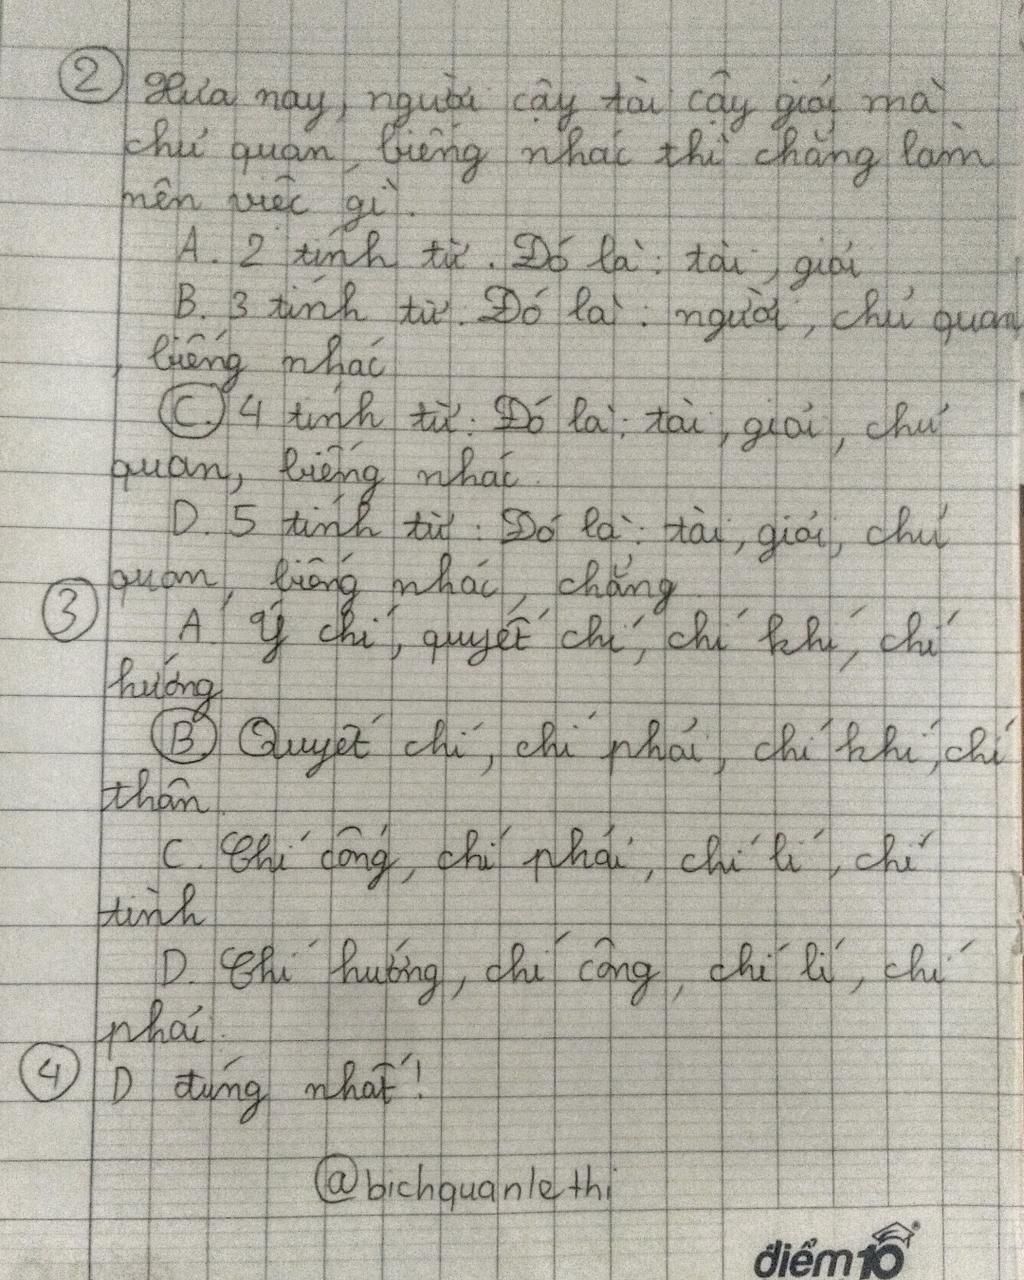 ② Xưa nay, người cậy tài cậy giỏi mà
chủ quan, biếng nhác thì chẳng làm
nên việc gì.
A. 2 tính từ. Đó là: tài, giỏi
B. 3 tính từ. Đó là: người, chủ quan
, biếng nhác
C. 4 tính từ: Đó là: tài, giỏi, chủ
quan, biếng nhác.
D. 5 tính từ: Đó là: tài, giỏi, chủ
quan, biếng nhác, chẳng
③ A. Ý chí, quyết chí, chí khí, chí
hướng
B. Quyết chí, chí phải, chí khí, chí
thân.
C. Chí công, chí phải, chí lí, chí
tình
D. Chí hướng, chí công, chí lí, chí
phải.
④ D đúng nhất!
@bichquanlethi
điểm10